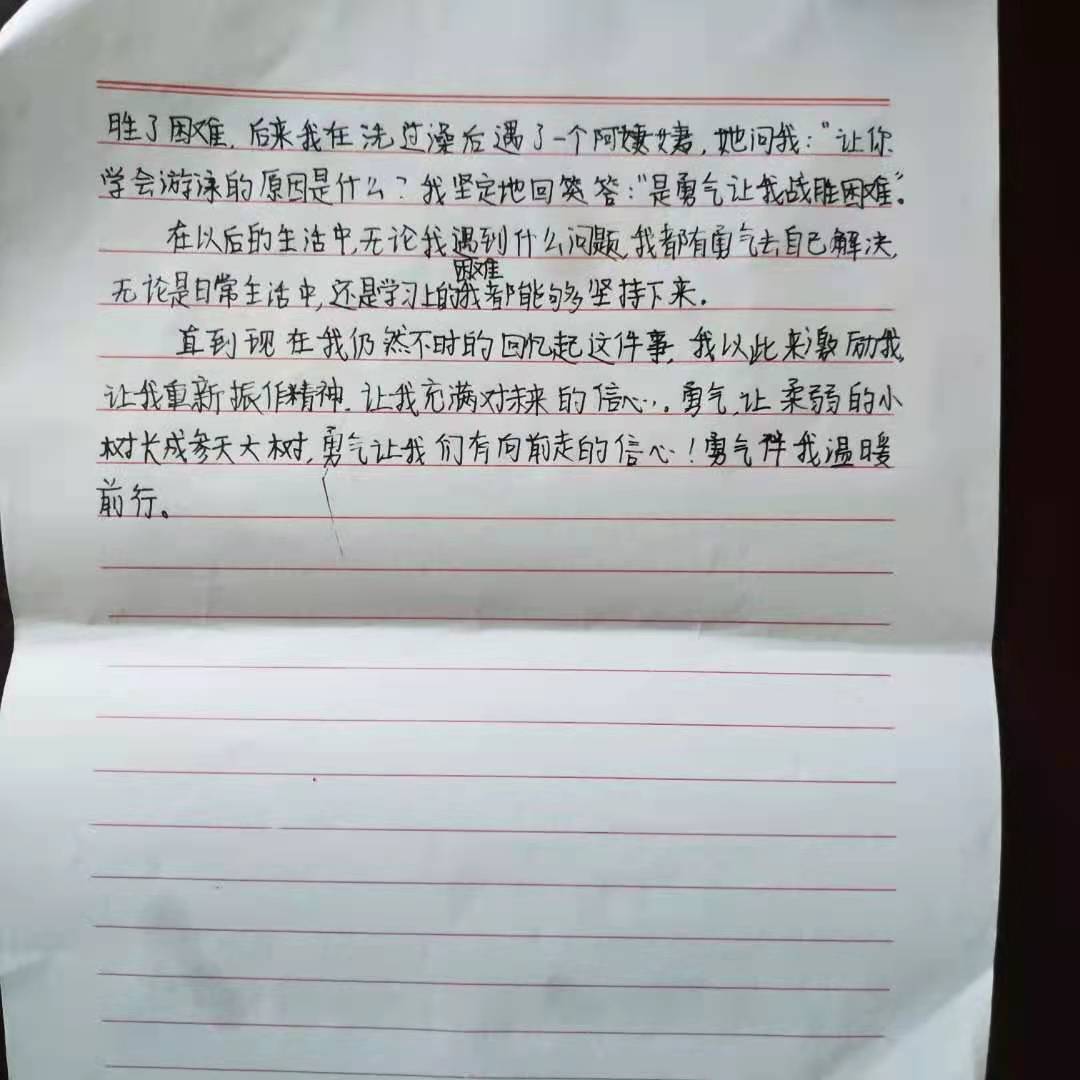 胜了困难，后来我在洗过澡后遇了一个阿姨，她问我："让你
学会游泳的原因是什么？我坚定地回笑答："是勇气让我战胜困难"。
在以后的生活中，无论我遇到什么问题，我都有勇气去自己解决，
困难
无论是日常生活中，还是学习上的我都能够坚持下来。
直到现在我仍然不时的回忆起这件事，我以此来激励我，
让我重新振作精神，让我充满对未来的信心。勇气，让柔弱的小
树长成参天大树，勇气让我们有向前走的信心！勇气伴我温暖
前行。